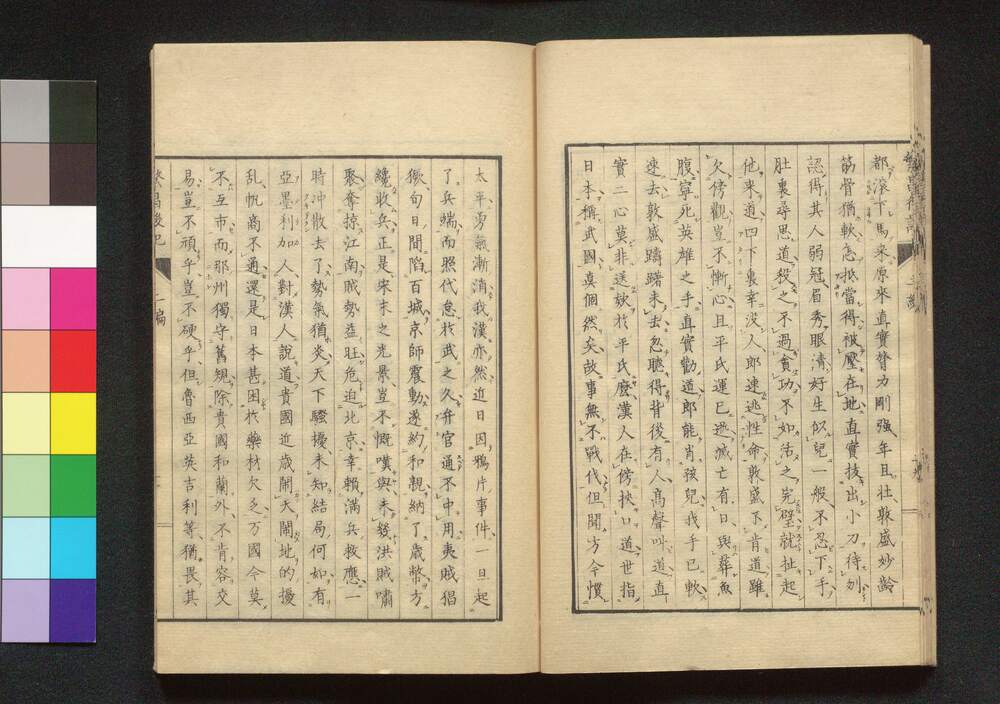 都滾下馬來原來直實膂力剛强年且壯敦盛妙齡
筋骨猶軟怎抵當得被壓在地直實拔出小刀待刎
認得其人弱冠眉秀眼清好生似兒一般不忍下手
肚裏尋思道殺之不過貪功不如活之完璧就扯起
他来道四下裏幸没人郎速逃性命敦盛不肯道雖
欠傍觀豈不慚心且平氏運已逃滅亡有日與葬魚
腹寧死英雄之手直實勸道郎能肖孩兒我手已軟
速去敦盛躊躇未去忽聽得背後有人高聲叫道直
實二心莫非送欵於平氏麽漢人在傍挾口道世指
日本稱武國真個然矣故事無不戰伐但聞方今慣
太平勇氣漸消我漢亦然近日因鴉片事件一旦起
了兵端而照代怠於武之久弁官通不中用夷賊猖
獗旬日間陷百城京師震動遂約和親納了歳幣方
纔收兵正是宋末之光景豈不慨嘆與未幾洪賊嘯
聚奪掠江南賊勢益旺危迫北京幸賴滿兵救應一
時冲散去了勢氣猶炎天下騷擾未知結局何如有
亞墨利加人對漢人說道貴國近歳鬧天鬧地的擾
乱帆商不通還是日本甚困於藥材欠乏万國今莫
不互市而那州獨守舊規除貴國和蘭外不肯容交
易豈不頑乎豈不硬乎但魯西亞英吉利等猶畏其
繁昌後記 二編